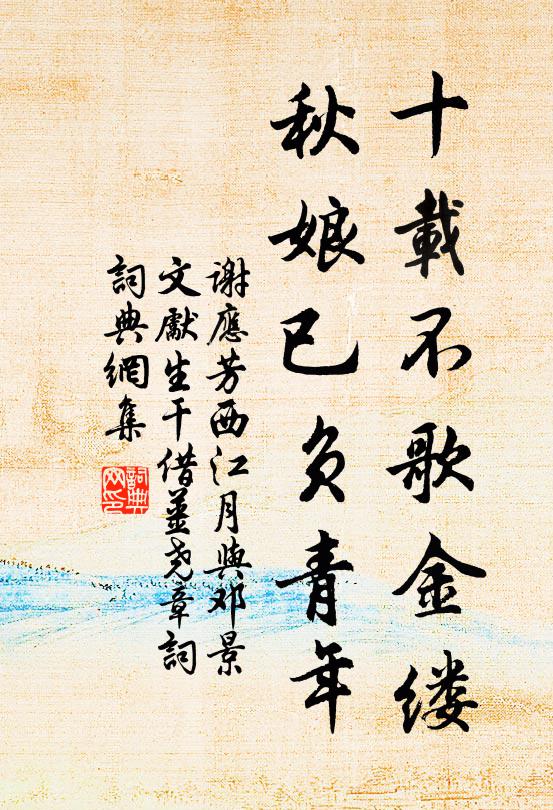 十載不歌金缕
秋娘已负青年
謝應芳西江月與邓景
文獻生干借薑尧章詞
詞典網集
詞典網印